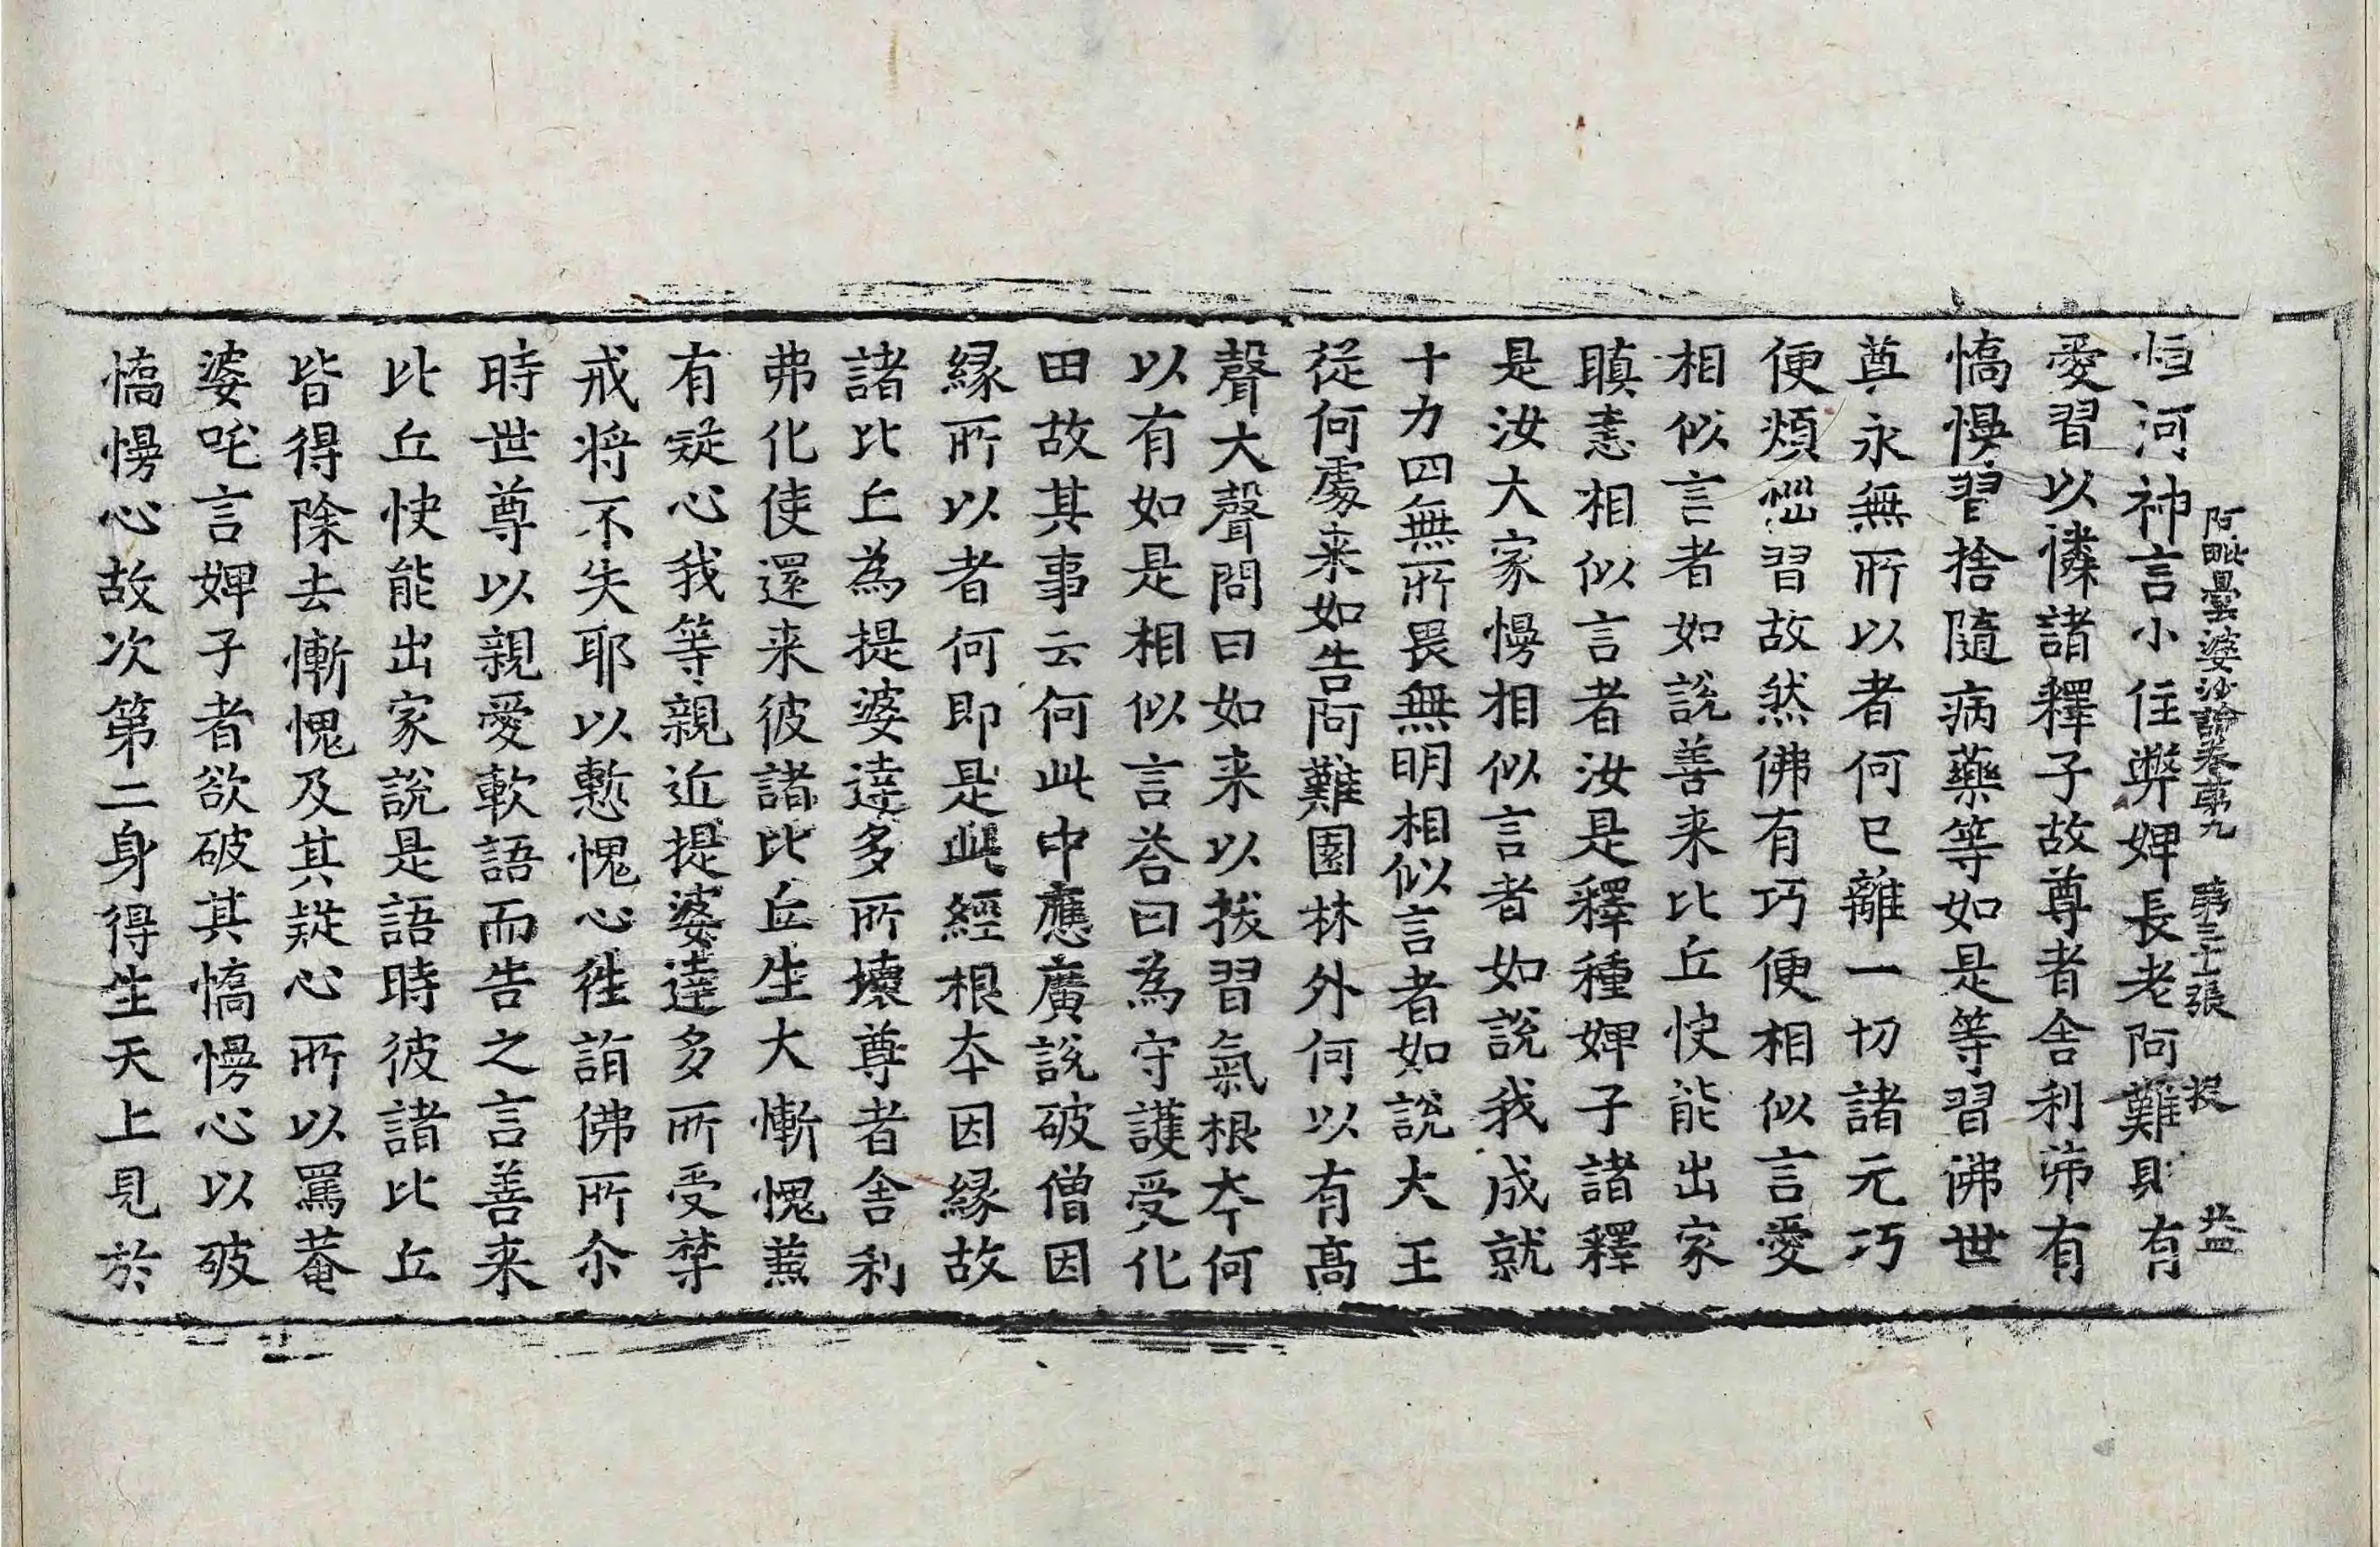 阿毗曇婆沙論卷苐九　苐三十張　投　益
恒河神言小住弊婢長老阿難則有
愛習以憐諸釋子故尊者舍利弗有
憍慢習捨隨病藥等如是等習佛世
尊永無所以者何已離一切諸元巧
便煩惱習故然佛有巧便相似言愛
相似言者如說善来比丘快能出家
瞋恚相似言者汝是釋種婢子諸釋
是汝大家慢相似言者如說我成就
十力四無所畏無明相似言者如說大王
從何處来如告阿難園林外何以有高
聲大聲問曰如来以拔習氣根夲何
以有如是相似言荅曰為守護受化
田故其事云何此中應廣說破僧因
縁所以者何即是此經根夲因縁故
諸比丘為提婆達多所壞尊者舍利
弗化使還来彼諸比丘生大慚愧兼
有疑心我等親近提婆達多所受禁
戒将不失耶以慙愧心徃詣佛所尒
時世尊以親愛軟語而告之言善来
比丘快能出家說是語時彼諸比丘
皆得除去慚愧及其疑心所以罵菴
婆吒言婢子者欲破其憍慢心以破
憍慢心故次第二身得生天上見於